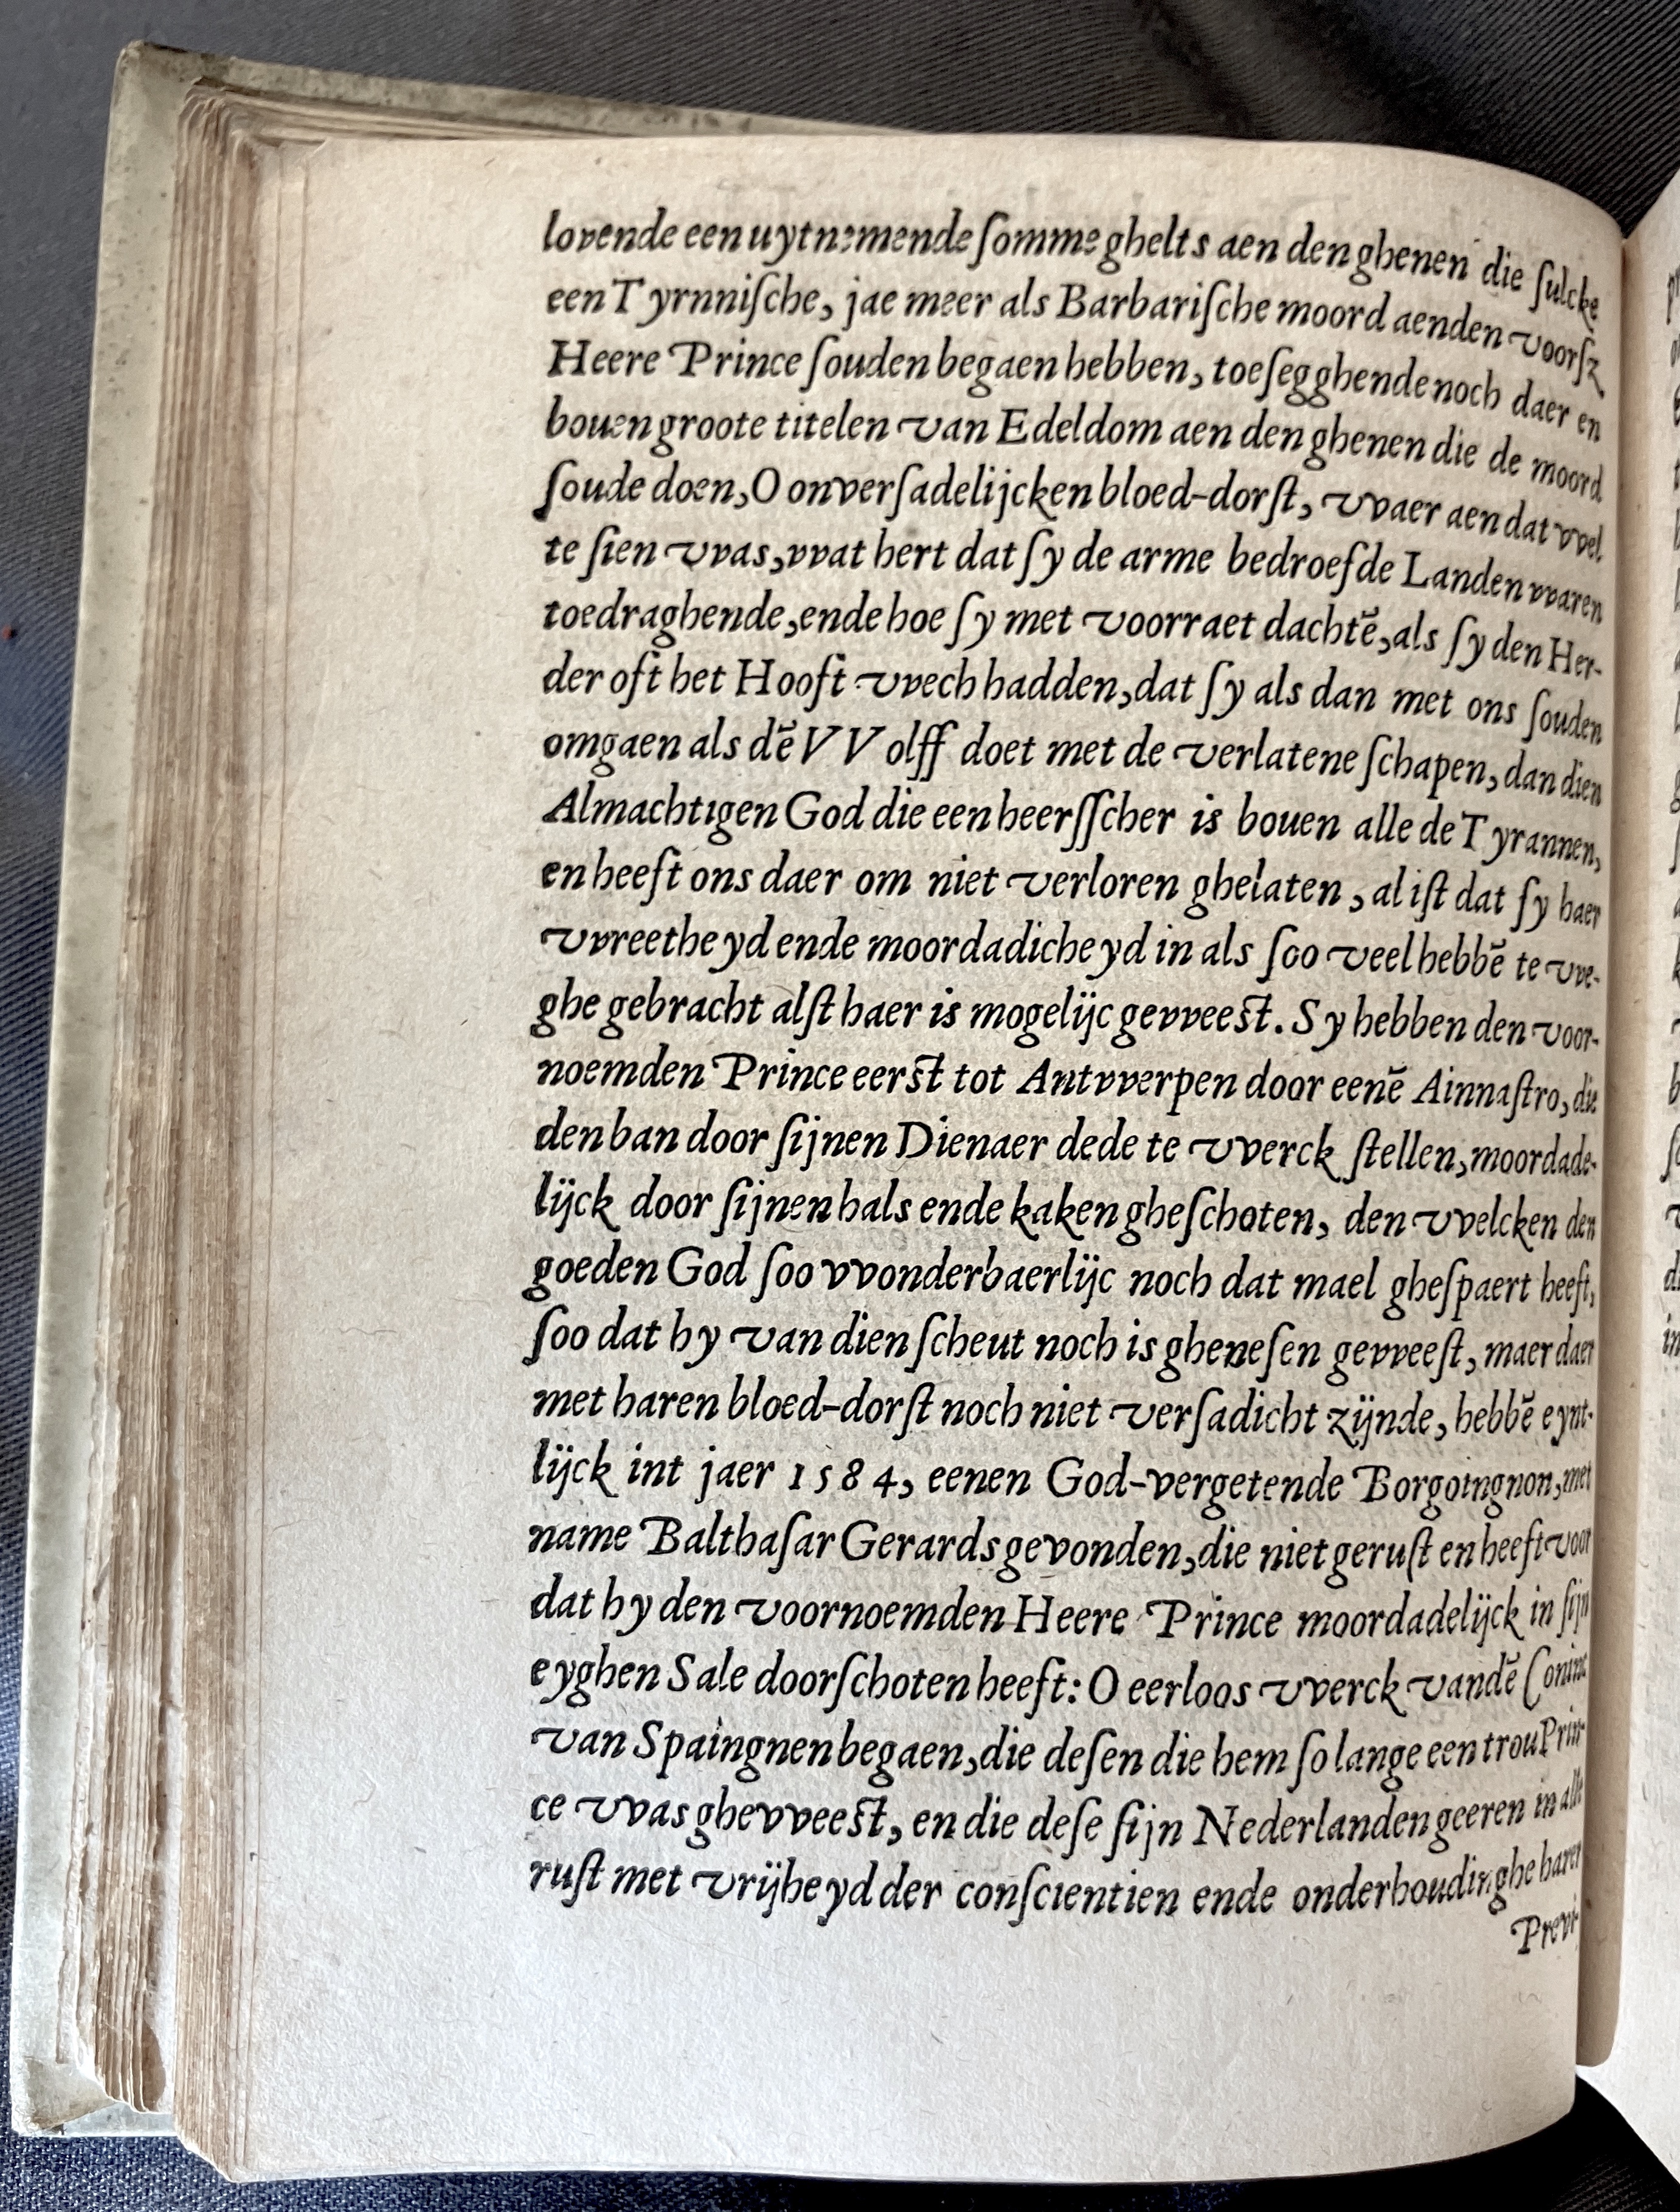 lovende een uytnemende ſomme ghelts aen den ghenen die ſulcke
een Tyrnniſche, jae meer als Barbariſche moord aenden voorſz
Heere Prince ſouden begaen hebben, toeſegghende noch daer en
bouen groote titelen van Edeldom aen den ghenen die de moord
ſoude doen, O onverſadelijcken bloed-dorſt, vvaer aen dat vvel
te ſien vvas, vvat hert dat ſy de arme bedroefde Landen vvaren
toedraghende, ende hoe ſy met voorraet dachtē, als ſy den Her-
der oft het Hooft vvech hadden, dat ſy als dan met ons ſouden
omgaen als dē VVolff doet met de verlatene ſchapen, dan dien
Almachtigen God die een heerſſcher is bouen alle de Tyrannen,
en heeft ons daer om niet verloren ghelaten, al iſt dat ſy haer
vvreetheyd ende moordadicheyd in als ſoo veel hebbē te vve-
ghe gebracht alſt haer is mogelijc gevveeſt. Sy hebben den voor-
noemden Prince eerſt tot Antvverpen door eenē Ainnaſtro, die
den ban door ſijnen Dienaer dede te vverck ſtellen, moordade-
lijck door ſijnen hals ende kaken gheſchoten, den vvelcken den
goeden God ſoo vvonderbaerlijc noch dat mael gheſpaert heeft,
ſoo dat hy van dien ſcheut noch is gheneſen gevveeſt, maer daer
met haren bloed-dorſt noch niet verſadicht zijnde, hebbē eynt-
lijck int jaer 1584, eenen God-vergetende Borgoingnon, met
name Balthaſar Gerards gevonden, die niet geruſt en heeft voor
dat hy den voornoemden Heere Prince moordadelijck in ſijn
eyghen Sale doorſchoten heeft: O eerloos vverck vandē Coninc
van Spaingnen begaen, die deſen die hem ſo lange een trou Prin-
ce vvas ghevveeſt, en die deſe ſijn Nederlanden geeren in alle
ruſt met vrijheyd der conſcientien ende onderhoudinghe harer
Previ-